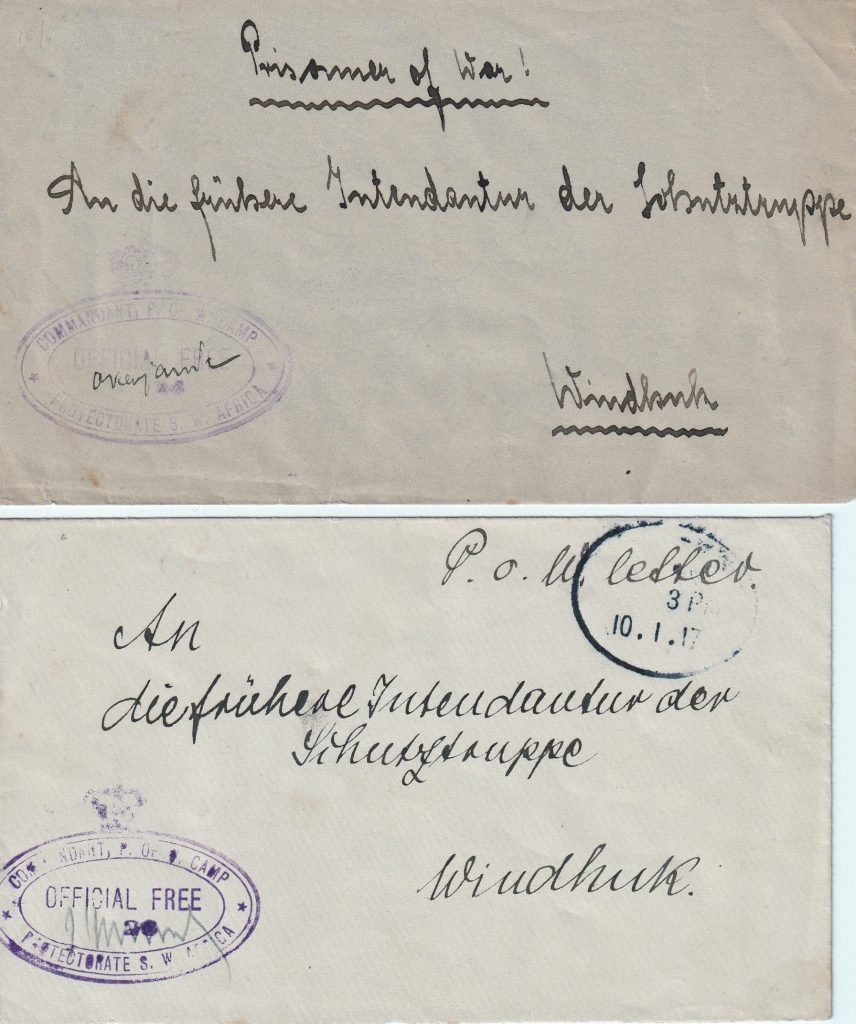 Prisonner of War!
An die frühere Intendantur der Schutztruppe
COMMANDANT, P. OF W. CAMP
OFFICIAL FREE
PROTECTORATE S. W. AFRICA
Windhuk
P. o. W. letter.
3 P
10.1.17
An
die frühere Intendantur der
Schutztruppe
COMMANDANT, P. OF W. CAMP
OFFICIAL FREE
PROTECTORATE S. W. AFRICA
Windhuk.